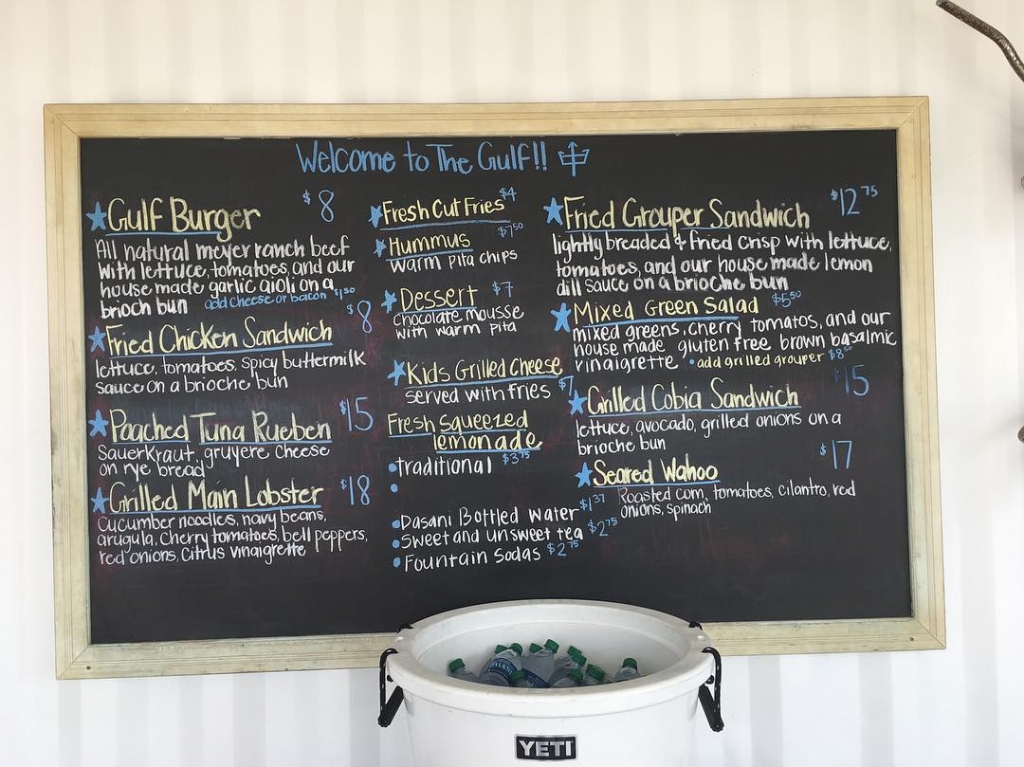 Welcome to The Gulf!!
Gulf Burger $8
All natural meyer ranch beef
with lettuce, tomatoes, and our
house made garlic aioli on a
brioch bun add cheese or bacon $1.50
Fried Chicken Sandwich $8
lettuce, tomatoes, spicy buttermilk
sauce on a brioche bun
Poached Tuna Rueben $15
Sauerkraut, gruyere cheese
on rye bread
Grilled Main Lobster $18
Cucumber noodles, navy beans,
arugula, cherry tomatoes, bell peppers,
red onions, citrus vinaigrette
Fresh Cut Fries $4
Hummus $7.50
warm pita chips
Dessert $7
chocolate mousse
with warm pita
Kids Grilled Cheese
served with fries $7
Fresh Squeezed
lemonade
•traditional $3.75
•
•Dasani Bottled Water $1.37
•Sweet and unsweet tea $2.75
•Fountain Sodas $2.75
Fried Grouper Sandwich $12.75
lightly breaded & fried crisp with lettuce,
tomatoes, and our house made lemon
dill sauce on a brioche bun
Mixed Green Salad $5.50
mixed greens, cherry tomatos, and our
house made gluten free brown basalmic
vinaigrette •add grilled grouper $8.50
Grilled Cobia Sandwich $15
lettuce, avocado, grilled onions on a
brioche bun
Seared Wahoo $17
Roasted corn, tomatoes, cilantro, red
onions, spinach
YETI